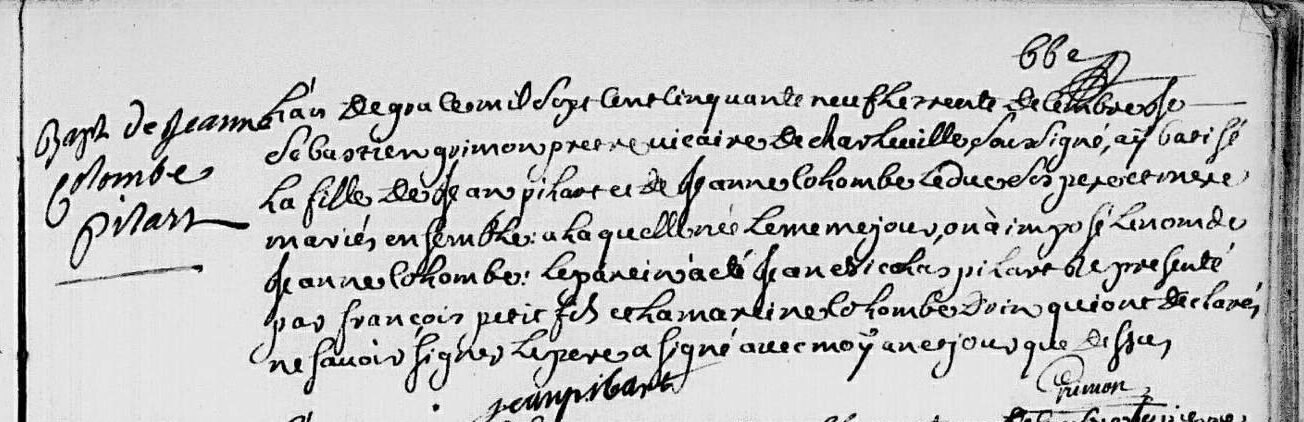 66e
Bapt de Jeanne
Colombe
Pilart
L'an de grace mil sept cent cinquante neuf le trente decembre je
Sebastien grimon pretre vicaire de charleville soussigné, aÿ batisé
la fille de Jean pilart et de Jeanne Colombe leduc ses pere et mere
mariés ensemble: a laquelle née le meme jour, on à imposé le nom de
Jeanne Colombe: le parein à eté Jean Nicolas pilart representé
par françois petit fils et la mareine Colombe qui ont declarés
ne savoir signer le pere a signé avec moÿ an et jour que dessus
jean pilart
Grimon